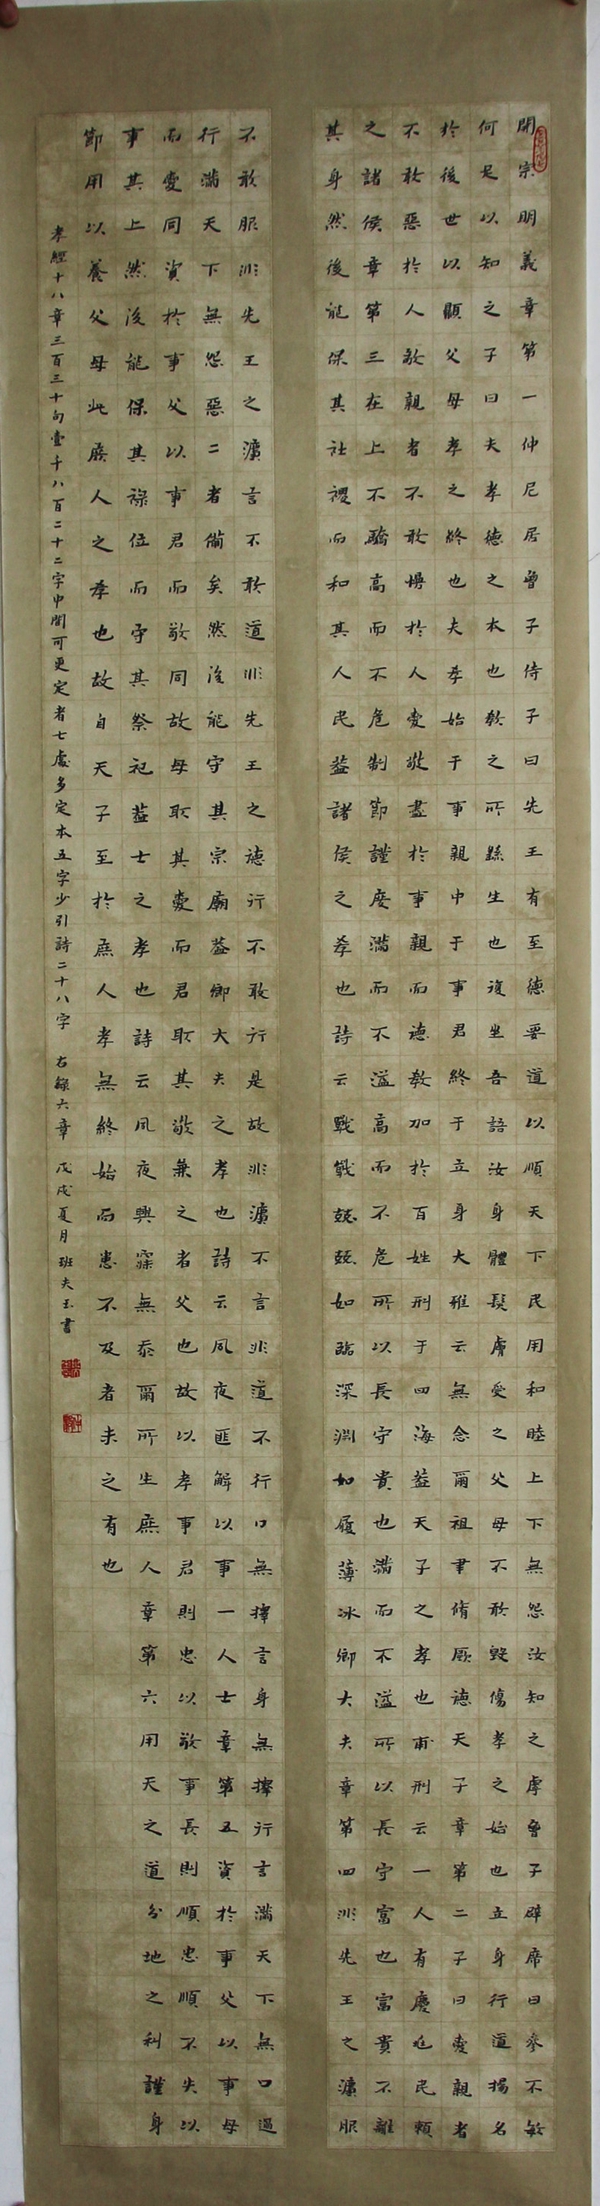 開宗明義章第一仲尼居曾子侍子曰先王有至德要道以順天下民用和睦上下無怨汝知之虖曾子辟席曰參不敏
何足以知之子曰夫孝德之本也教之所繇生也復坐吾語汝身體髮膚受之父母不敢毀傷孝之始也立身行道揚名
於後世以顯父母孝之終也夫孝始于事親中于事君終于立身大雅云無念爾祖聿脩厥德天子章第二子曰愛親者
不敢惡於人敬親者不敢慢於人愛敬盡於事親而德教加於百姓刑于四海蓋天子之孝也甫刑云一人有慶兆民賴
之諸侯章第三在上不驕高而不危制節謹度滿而不溢高而不危所以長守貴也滿而不溢所以長守富也富貴不離
其身然後能保其社稷而和其人民蓋諸侯之孝也詩云戰戰兢兢如臨深淵如履薄冰卿大夫章第四非先王之灋服
不敢服非先王之灋言不敢道非先王之德行不敢行是故非灋不言非道不行口無擇言身無擇行言滿天下無口過
行滿天下無怨惡二者備矣然後能守其宗廟蓋卿大夫之孝也詩云夙夜匪解以事一人士章第五資於事父以事母
而愛同資於事父以事君而敬同故母取其愛而君取其敬兼之者父也故以孝事君則忠以敬事長則順忠順不失以
事其上然後能保其祿位而守其祭祀蓋士之孝也詩云夙夜興寐無忝爾所生庶人章第六用天之道分地之利謹身
節用以養父母此庶人之孝也故自天子至於庶人孝無終始而患不及者未之有也
孝經十八章三百三十句壹千八百二十二字中間可更定者七處多定本五字少引詩二十八字 右錄六章 戊戌夏月 班夫玉書